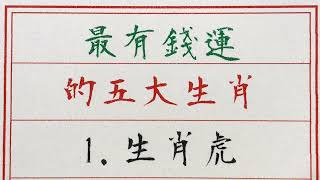 最有錢運
的五大生肖
1.生肖虎